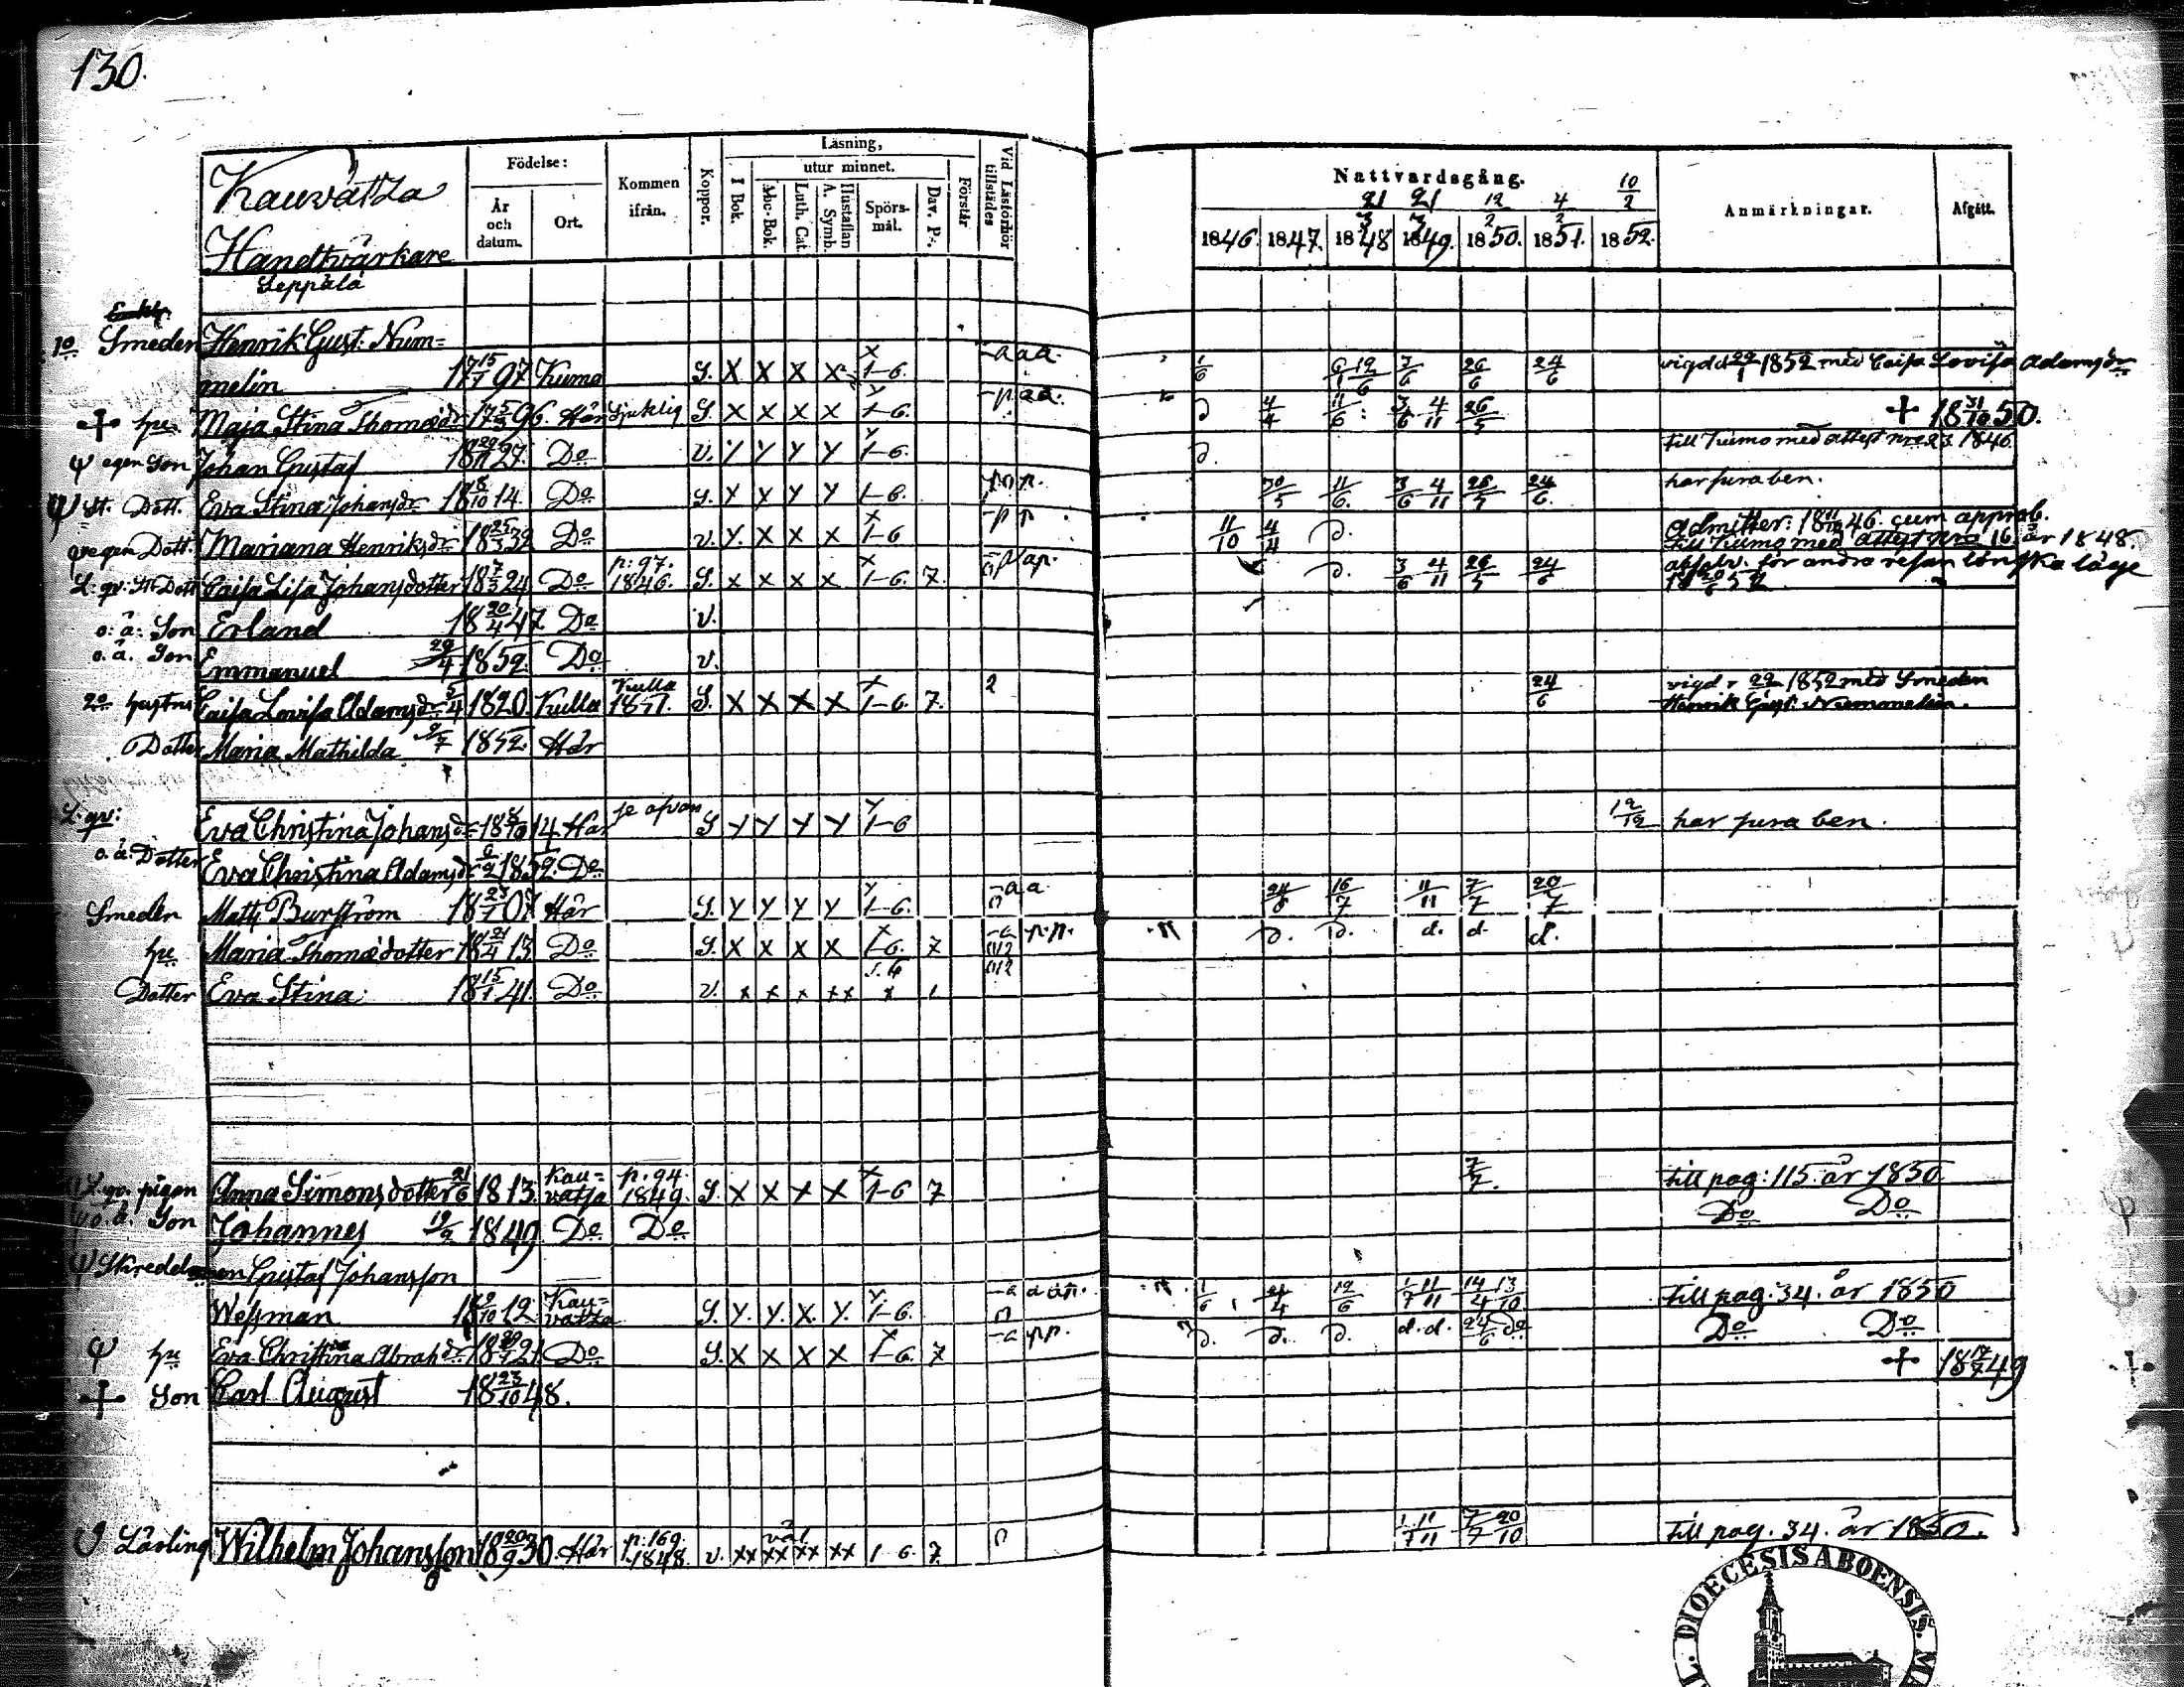 130.
Kauvatza
Handtvärkare
Seppälä
Födelse:
År och datum.
Ort.
Kommen ifrån.
Koppor.
Läsning,
I Bok.
utur minnet.
Abc-Bok.
Luth. Cat.
A. Symb.
Hustaflan
Spörsmål.
Dav. Ps.
Förstår
Vid Läsförhör tillstädes
Nattvardsgång.
21 21 12 4 10
3 3 2 2 2
1846. 1847. 1848 1849. 1850. 1851. 1852.
Anmärkningar.
Afgått.
1o Smeden Henrik Gust. Num=
melin 17 15/7 97 Kumo S. X X X X 1-6. a a. 1/6 6/1 19/6 3/6 26/6 24/6 vigd d 22/1 1852 med Caisa Lovisa Adamsdr
+ hu Maja Stina Thomædr 17 5/3 96. Här Sjuklig S. X X X X 1-6. p. a a. d 4/4 11/6 3/6 4/11 26/5 + 18 31/10 50.
egen Son Johan Gustaf 18 29/11 27. Do v. Y Y Y Y 1-6. d. till Kumo med attest nro 23. 1846.
st. Dott. Eva Stina Johansdr 18 8/10 14. Do S. Y Y Y Y 1-6. 30/5 11/6. 3/6 4/11 26/5 24/6. har fura ben.
egen Dott. Mariana Henriksdr 18 25/3 32 Do v. Y. X X X 1-6 11/10 4/4 d. admitter: 18 11/10 46. cum approb.
till Kumo med attest nro 16 år 1848.
L. qv. St. Dott Caisa Lisa Johansdotter 18 7/3 24 Do p: 97. 1846. S. x x x x 1-6. 7. d. 3/6 4/11 26/5 24/6 absolv. för andra resan lönska läge
o. ä. Son Erland 18 20/4 47 Do v.
o. ä. Son Emmanuel 29/4 1852. Do v.
2o hustru Caisa Lovisa Adamsdr 5/4 1820. Kulla Kulla 1851. S. X X X X 1-6. 7. 2 24/6 vigd d 22/1 1852 med Smeden
Henrik Gust. Nummelin.
Dotter Maria Mathilda 9/7 1852. Här
L. qv: Eva Christina Johansdr 18 8/10 14 Här se ofvan S Y Y Y Y 1-6 12/12 har fura ben.
o. ä. Dotter Eva Christina Adamsdr 6/2 1852. Do
Smeden Matts Burström 18 23/7 07 Här S. Y Y Y Y 1-6. a a 24/6 16/7 11/11 7/7 20/7
hu Maria Thomædotter 18 21/4 13 Do S. X X X X 1-6. 7 a p. p. d. d. d. d. d.
Dotter Eva Stina 18 15/1 41. Do v. x x x xx x 1
L. qv. pigan Anna Simonsdotter 21/6 1813. Kau=vatsa p: 94. 1849. S. X X X X 1-6 7 7/7. till pag: 115. år 1850
o. ä. Son Johannes 19/9 1849 Do Do Do Do
Gustaf Johansson
Wessman 18 2/10 12. Kau=vatza S. Y. Y. X. Y. 1-6. a a a n. 1/6 4/4 12/6 1/7 11/11 14/4 13/10 till pag. 34. år 1850
hu Eva Christina Abrahdr Do S. X X X X 1-6. 7 a p p. d. d. d. d. d. 24/6 do Do Do
+ Son Carl August 18 23/10 48. + 18 17/7 49
Lärling Wilhelm Johansson 18 20/9 30. Här p: 169. 1848. v. xx väl xx xx xx 1 6. 7. 1/7 11/11 7/7 20/10 till pag. 34. år 1850.
DIOECESIS ABOENSIS.